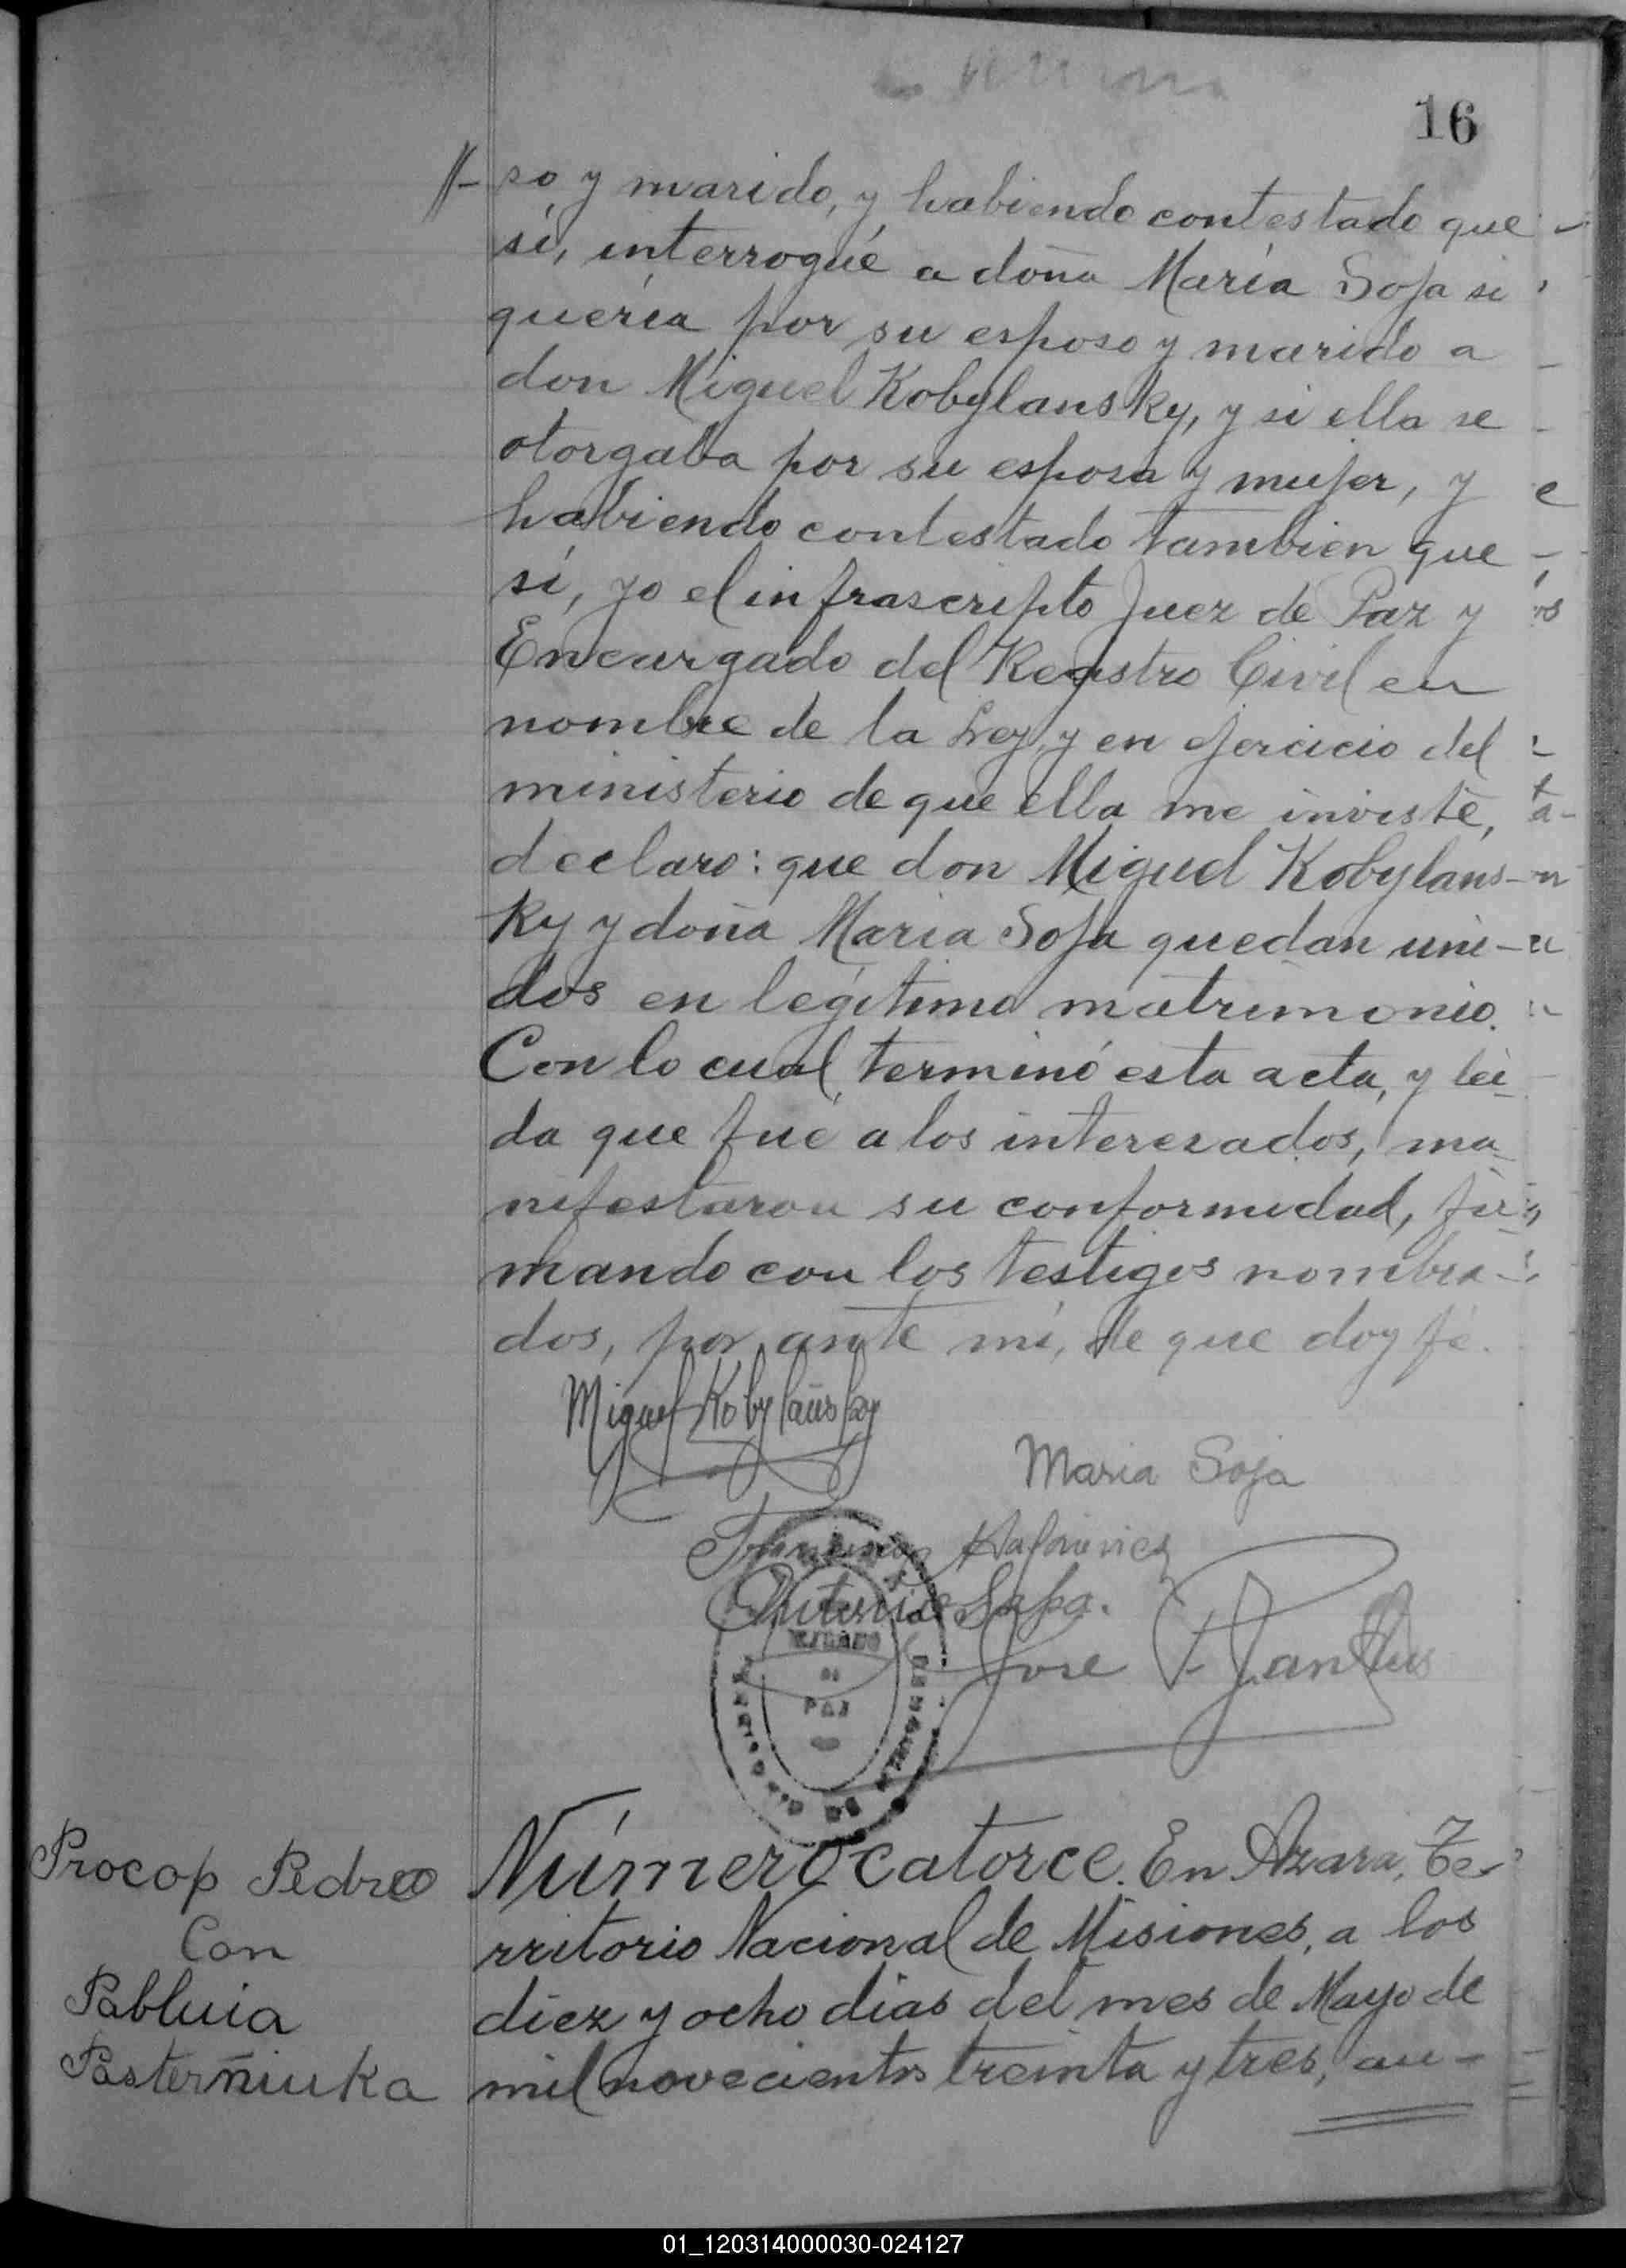 16
//- so, y marido, y habiendo contestado que
sí, interrogué a doña María Soja si
quería por su esposo y marido a
don Miguel Kobylansky, y si ella se
otorgaba por su esposa y mujer, y
habiendo contestado tambien que
sí, yo el infrascripto Juez de Paz y
Encargado del Registro Civil en
nombre de la Ley, y en ejercicio del
ministerio de que ella me inviste,
declaro: que don Miguel Kobylans-
ky y doña Maria Soja quedan uni-
dos en legítimo matrimonio.
Con lo cual, terminó esta acta, y leí-
da que fué a los interezados, ma-
nifestaron su conformidad, fir-
mando con los testigos nombra-
dos, por ante mí, de que doy fé.
Miguel Kobylañsky
Maria Soja
Francisco
Antonio
Jose F.
PAZ
Procop Pedro
Con
Pabluia
Pasterñiuka
Número catorce. En Azara, Te-
rritorio Nacional de Misiones, a los
diez y ocho dias del mes de Mayo de
mil novecientos treinta y tres, an-
01_120314000030-024127